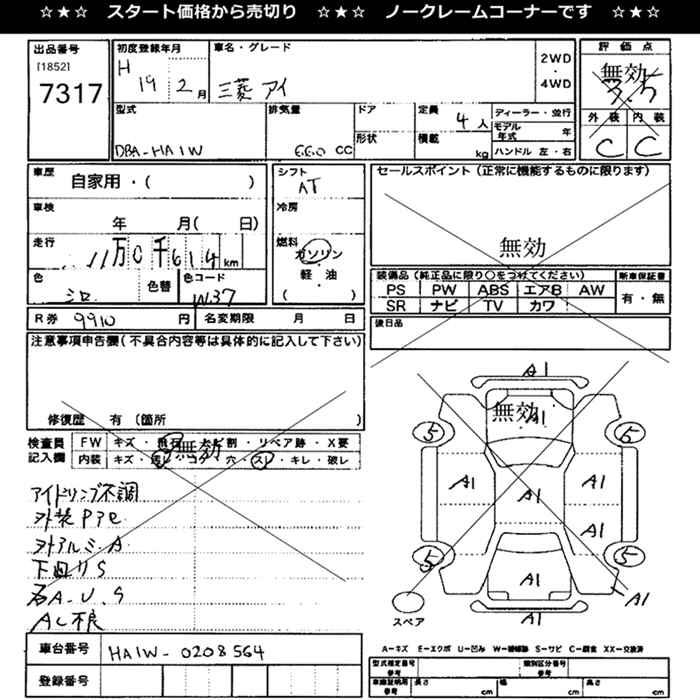 ☆★☆ スタート価格から売切り ☆★☆ ノークレームコーナーです ☆★☆
出品番号 初度登録年月 車名・グレード 2WD・4WD 評価点
[1852] H 19 2月 三菱 アイ 無効 3.5
7317
外装 内装
C C
型式 排気量 ドア 定員 4人 ディーラー・並行
形状 積載 kg モデル年式 年
DBA-HA1W 660 CC ハンドル 左・右
車歴 自家用・( ) シフト AT
セールスポイント(正常に機能するものに限ります)
車検 年 月( 日) 冷房
無効
走行 11万0千614km 燃料 ガソリン
軽・油
( )
装備品(純正品に限り○をつけてください) 新車保証書
PS PW ABS エアB AW 有・無
SR ナビ TV カワ
色 シロ 色替 色コード W37
R券 9910円 名変期限 月 日 後日品
注意事項申告欄(不具合内容等は具体的に記入して下さい)
修復歴 有(箇所 )
検査員記入欄 FW キズ・飛石・ ・リペア跡・X要
内装 キズ・汚レ・コゲ・穴・スレ・キレ・破レ
無効
アイドリング不調
外装Pアセ
外アルミA
下回りS
石A.U.S
AC不良
車台番号 HA1W-0208564
登録番号
無効
A1
A1
5 5
A1 A1 A1
A1
5 5
A1
A1
A1
スペア
A-キズ E-エクボ U-凹み W-補修跡 S-サビ C-腐食 XX-交換済
型式指定番号 参考 類別区分番号 参考
車庫証明用参考 長さ cm 幅 cm 高さ cm